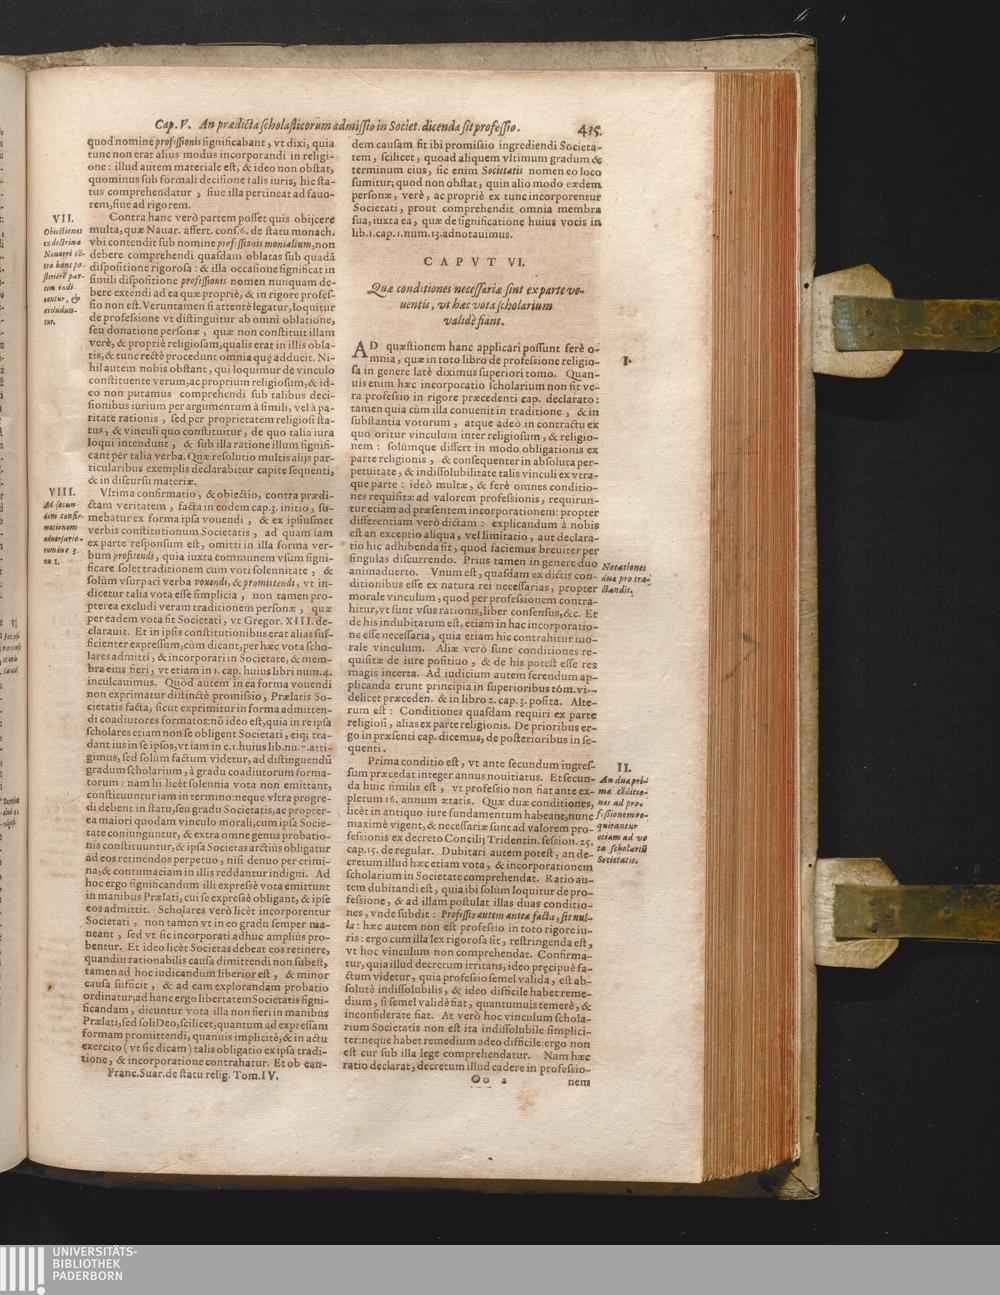 Cap. V. An prædicta scholasticorum admissio in Societ. dicenda sit professio. 435.
quod nomine professionis significabant, vt dixi, quia
tunc non erat alius modus incorporandi in religi-
one: illud autem materiale est, & ideo non obstat,
quominus sub formali decisione talis iuris, hic sta-
tus comprehendatur, siue illa pertineat ad fauo-
rem, siue ad rigorem.
VII.
Obiectiones
ex doctrina
Nauarri cō-
tra hanc po-
steriorē par-
tem indi
cantur, &
excludun-
tur.
Contra hanc verò partem posset quis obijcere
multa, quæ Nauar. affert. cons. 6. de statu monach.
vbi contendit sub nomine professionis monialium, non
debere comprehendi quasdam oblatas sub quadā
dispositione rigorosa: & illa occasione significat in
simili dispositione professionis nomen nunquam de-
bere extendi ad ea quæ propriè, & in rigore profes-
sio non est. Veruntamen si attentè legatur, loquitur
de professione vt distinguitur ab omni oblatione,
seu donatione personæ, quæ non constituit illam
verè, & propriè religiosam, qualis erat in illis obla-
tis, & tunc rectè procedunt omnia quę adducit. Ni-
hil autem nobis obstant, qui loquimur de vinculo
constituente verum, ac proprium religiosum, & id-
eo non putamus comprehendi sub talibus deci-
sionibus iurium per argumentum à simili, vel à pa-
ritate rationis, sed per proprietatem religiosi sta-
tus, & vinculi quo constituitur, de quo talia iura
loqui intendunt, & sub illa ratione illum signifi-
cant per talia verba. Quæ resolutio multis alijs par-
ticularibus exemplis declarabitur capite sequenti,
& in discursu materiæ.
VIII.
Ad secun-
dam confir-
mationem
aduersario-
rum in c. 3.
nu 1.
Vltima confirmatio, & obiectio, contra prædi-
ctam veritatem, facta in eodem cap. 3. initio, su-
mebatur ex forma ipsa vouendi, & ex ipsiusmet
verbis constitutionum Societatis, ad quam iam
ex parte responsum est, omitti in illa forma ver-
bum profitendi, quia iuxta communem vsum signi-
ficare solet traditionem cum voti solennitate, &
solùm vsurpari verba vouendi, & promittendi, vt in-
dicetur talia vota esse simplicia, non tamen pro-
pterea excludi veram traditionem personæ, quæ
per eadem vota fit Societati, vt Gregor. XIII. de-
clarauit. Et in ipsis constitutionibus erat alias suf-
ficienter expressum, cùm dicant, per hæc vota scho-
lares admitti, & incorporari in Societate, & mem-
bra eius fieri, vt etiam in 1. cap. huius libri num. 4.
inculcauimus. Quòd autem in ea forma vouendi
non exprimatur distinctè promissio, Prælatis So-
cietatis facta, sicut exprimitur in forma admitten-
di coadiutores formatos: nō ideo est, quia in re ipsa
scholares etiam non se obligent Societati, eiq; tra-
dant ius in se ipsos, vt iam in c. 1. huius lib. nu. 7. atti-
gimus, sed solùm factum videtur, ad distinguendū
gradum scholarium, à gradu coadiutorum forma-
torum: nam hi licèt solennia vota non emittant,
constituuntur iam in termino: neque vltra progre-
di debent in statu, seu gradu Societatis, ac propter-
ea maiori quodam vinculo morali, cum ipsa Socie-
tate coniunguntur, & extra omne genus probatio-
nis constituuntur, & ipsa Societas arctiùs obligatur
ad eos retinendos perpetuo, nisi denuo per crimi-
na, & contumaciam in illis reddantur indigni. Ad
hoc ergo significandum illi expressè vota emittunt
in manibus Prælati, cui se expressè obligant, & ipse
eos admittit. Scholares verò licèt incorporentur
Societati, non tamen vt in eo gradu semper ma-
neant, sed vt sic incorporati adhuc ampliùs pro-
bentur. Et ideo licèt Societas debeat eos retinere,
quandiu rationabilis causa dimittendi non subest,
tamen ad hoc iudicandum liberior est, & minor
causa sufficit, & ad eam explorandam probatio
ordinatur; ad hanc ergo libertatem Societatis signi-
ficandam, dicuntur vota illa non fieri in manibus
Prælati, sed soli Deo, scilicet, quantum ad expressam
formam promittendi, quanuis implicitè, & in actu
exercito (vt sic dicam) talis obligatio ex ipsa tradi-
tione, & incorporatione contrahatur. Et ob ean-
Franc. Suar. de statu relig. Tom. IV.
dem causam fit ibi promissio ingrediendi Societa-
tem, scilicet, quoad aliquem vltimum gradum &
terminum eius, sic enim Societatis nomen eo loco
sumitur, quod non obstat, quin alio modo eædem
personæ, verè, ac propriè ex tunc incorporentur
Societati, prout comprehendit omnia membra
sua, iuxta ea, quæ de significatione huius vocis in
lib. 1. cap. 1. num. 13. adnotauimus.
CAPVT VI.
Quæ conditiones necessariæ sint ex parte vo-
uentis, vt hæc vota scholarium
validè fiant.
I.
AD quæstionem hanc applicari possunt ferè o-
mnia, quæ in toto libro de professione religio-
sa in genere latè diximus superiori tomo. Quan-
uis enim hæc incorporatio scholarium non sit ve-
ra professio in rigore præcedenti cap. declarato:
tamen quia cùm illa conuenit in traditione, & in
substantia votorum, atque adeò in contractu ex
quo oritur vinculum inter religiosum, & religio-
nem: solùmque differt in modo obligationis ex
parte religionis, & consequenter in absoluta per-
petuitate, & indissolubilitate talis vinculi ex vtra-
que parte: ideò multæ, & ferè omnes conditio-
nes requisitæ ad valorem professionis, requirun-
tur etiam ad præsentem incorporationem: propter
differentiam verò dictam: explicandum à nobis
est an exceptio aliqua, vel limitatio, aut declara-
tio hic adhibenda sit, quod faciemus breuiter per
singulas discurrendo. Prius tamen in genere duo
animaduerto. Vnum est, quasdam ex dictis con-
ditionibus esse ex natura rei necessarias, propter
morale vinculum, quod per professionem contra-
hitur, vt sunt vsus rationis, liber consensus, &c. Et
de his indubitatum est, etiam in hac incorporatio-
ne esse necessaria, quia etiam hic contrahitur mo-
rale vinculum. Aliæ verò sunt conditiones re-
quisitæ de iure positiuo, & de his potest esse res
magis incerta. Ad iudicium autem ferendum ap-
plicanda erunt principia in superioribus tóm. vi-
delicet præceden. & in libro 2. cap. 3. posita. Alte-
rum est: Conditiones quasdam requiri ex parte
religiosi, alias ex parte religionis. De prioribus er-
go in præsenti cap. dicemus, de posterioribus in se-
quenti.
Notationes
duæ pro tra-
ctandis.
Prima conditio est, vt ante secundum ingres-
sum præcedat integer annus nouitiatus. Et secun-
da huic similis est, vt professio non fiat ante ex-
pletum 16. annum ætatis. Quæ duæ conditiones,
licèt in antiquo iure fundamentum habeant, nunc
maximè vigent, & necessariæ sunt ad valorem pro-
fessionis ex decreto Concilij Tridentin. session. 25.
cap. 15. de regular. Dubitari autem potest, an de-
cretum illud hæc etiam vota, & incorporationem
scholarium in Societate comprehendat. Ratio au-
tem dubitandi est, quia ibi solùm loquitur de pro-
fessione, & ad illam postulat illas duas conditio-
nes, vnde subdit: Professio autem antea facta, sit nul-
la: hæc autem non est professio in toto rigore iu-
ris: ergo cum illa lex rigorosa sit, restringenda est,
vt hoc vinculum non comprehendat. Confirma-
tur, quia illud decretum irritans, ideo præcipuè fa-
ctum videtur, quia professio semel valida, est ab-
solutè indissolubilis, & ideo difficile habet reme-
dium, si semel validè fiat, quantumuis temerè, &
inconsiderate fiat. At verò hoc vinculum schola-
rium Societatis non est ita indissolubile simplici-
ter: neque habet remedium adeo difficile: ergo non
est cur sub illa lege comprehendatur. Nam hæc
ratio declarat, decretum illud cadere in professio-
II.
An duæ pri-
mæ cōditio-
nes ad pro-
fessionem re-
quirantur
etiam ad vo
ta scholariū
Societatis.
Oo 2 nem
UNIVERSITÄTS-
BIBLIOTHEK
PADERBORN